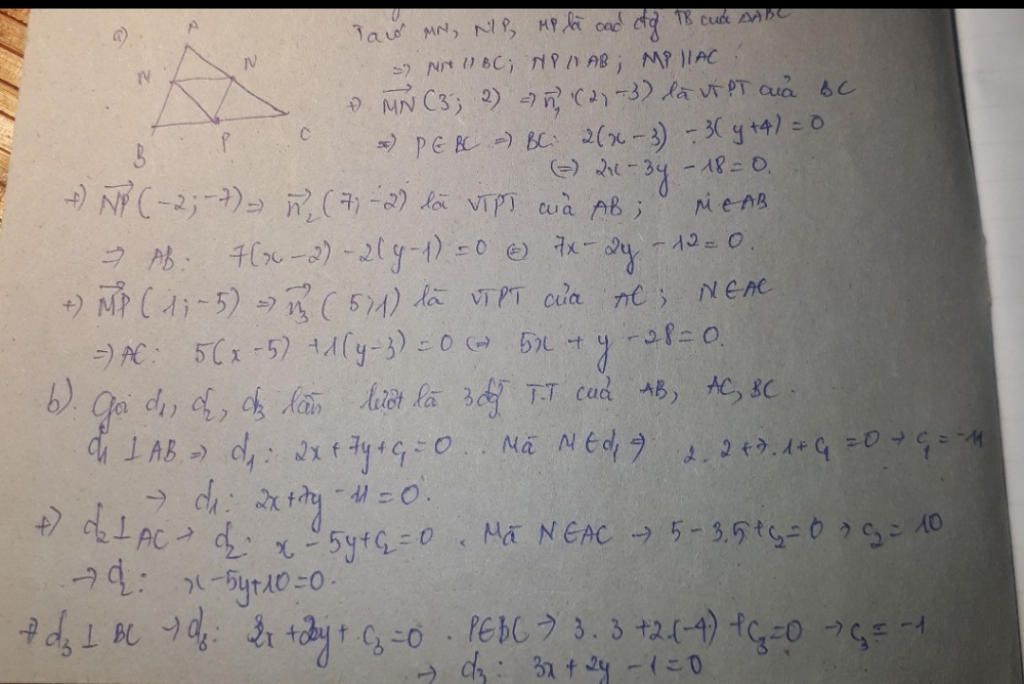 a)
A
M
N
B
P
C
Ta có MN, NP, MP là các đg TB của ΔABC
=> MN // BC; NP // AB; MP // AC
+) MN→ (3; 2) => n₁→ (2; -3) là VTPT của BC
=> P ∈ BC => BC: 2(x - 3) - 3(y + 4) = 0
(=) 2x - 3y - 18 = 0.
+) NP→ (-2; -7) => n₂→ (7; -2) là VTPT của AB; M ∈ AB
=> AB: 7(x - 2) - 2(y - 1) = 0 (=) 7x - 2y - 12 = 0.
+) MP→ (1; -5) => n₃→ (5; 1) là VTPT của AC; N ∈ AC
=> AC: 5(x - 5) + 1(y - 3) = 0 (=> 5x + y - 28 = 0.
b). Gọi d₁, d₂, d₃ lần lượt là 3 đg T.T của AB, AC, BC.
d₁ ⊥ AB => d₁: 2x + 7y + c₁ = 0. Mà M ∈ d₁ => 2.2 + 7.1 + c₁ = 0 → c₁ = -11
→ d₁: 2x + 7y - 11 = 0.
+) d₂ ⊥ AC → d₂: x - 5y + c₂ = 0. Mà N ∈ AC → 5 - 3.5 + c₂ = 0 → c₂ = 10
→ d₂: x - 5y + 10 = 0.
+) d₃ ⊥ BC → d₃: 3x + 2y + c₃ = 0. P ∈ BC → 3.3 + 2.(-4) + c₃ = 0 → c₃ = -1
→ d₃: 3x + 2y - 1 = 0